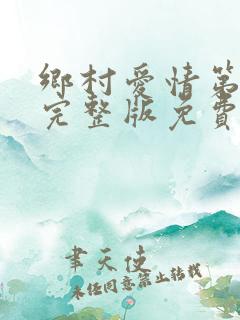 鄉村愛情第
完整版免費
聿天使
未任同意禁止转載